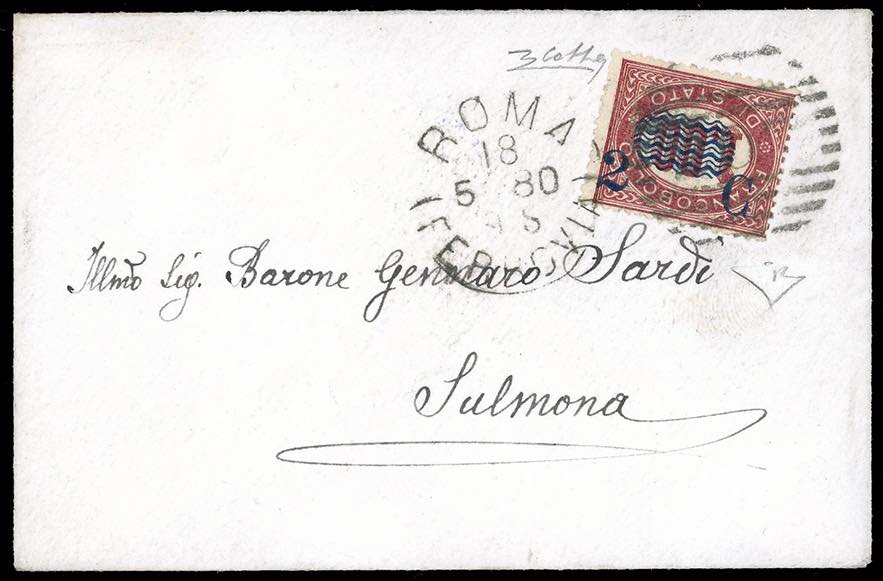 ROMA
18
5 80
(FERROVIA)
FRANCOBOLLO
DI STATO
2 C
Illmo Sig. Barone Gennaro Sardi
Sulmona